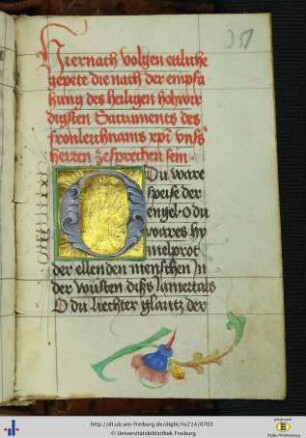 351
Hiernach volgen ettliche
gepete die nach der empfa
hung des heiligen hohwir
digsten Sacraments des
fronleichnams xpi vnss
herren ze sprechen sein.
O Du ware
speise der
engel. O du
wares hy
melprot
der ellenden menschen In
der wüsten diss Jamertals
O du liechter glantz der
http://dl.ub.uni-freiburg.de/diglit/hs214/0703
© Universitätsbibliothek Freiburg